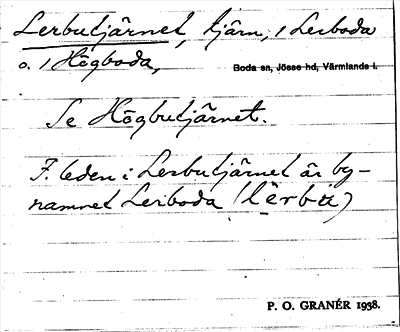 Lerbutjärnet, tjärn, i Lerboda
o. i Högboda,
Boda sn, Jösse hd, Värmlands l.
Se Högbutjärnet.
F. leden i Lerbutjärnet är by-
namnet Lerboda (
P. O. GRANÉR 1938.